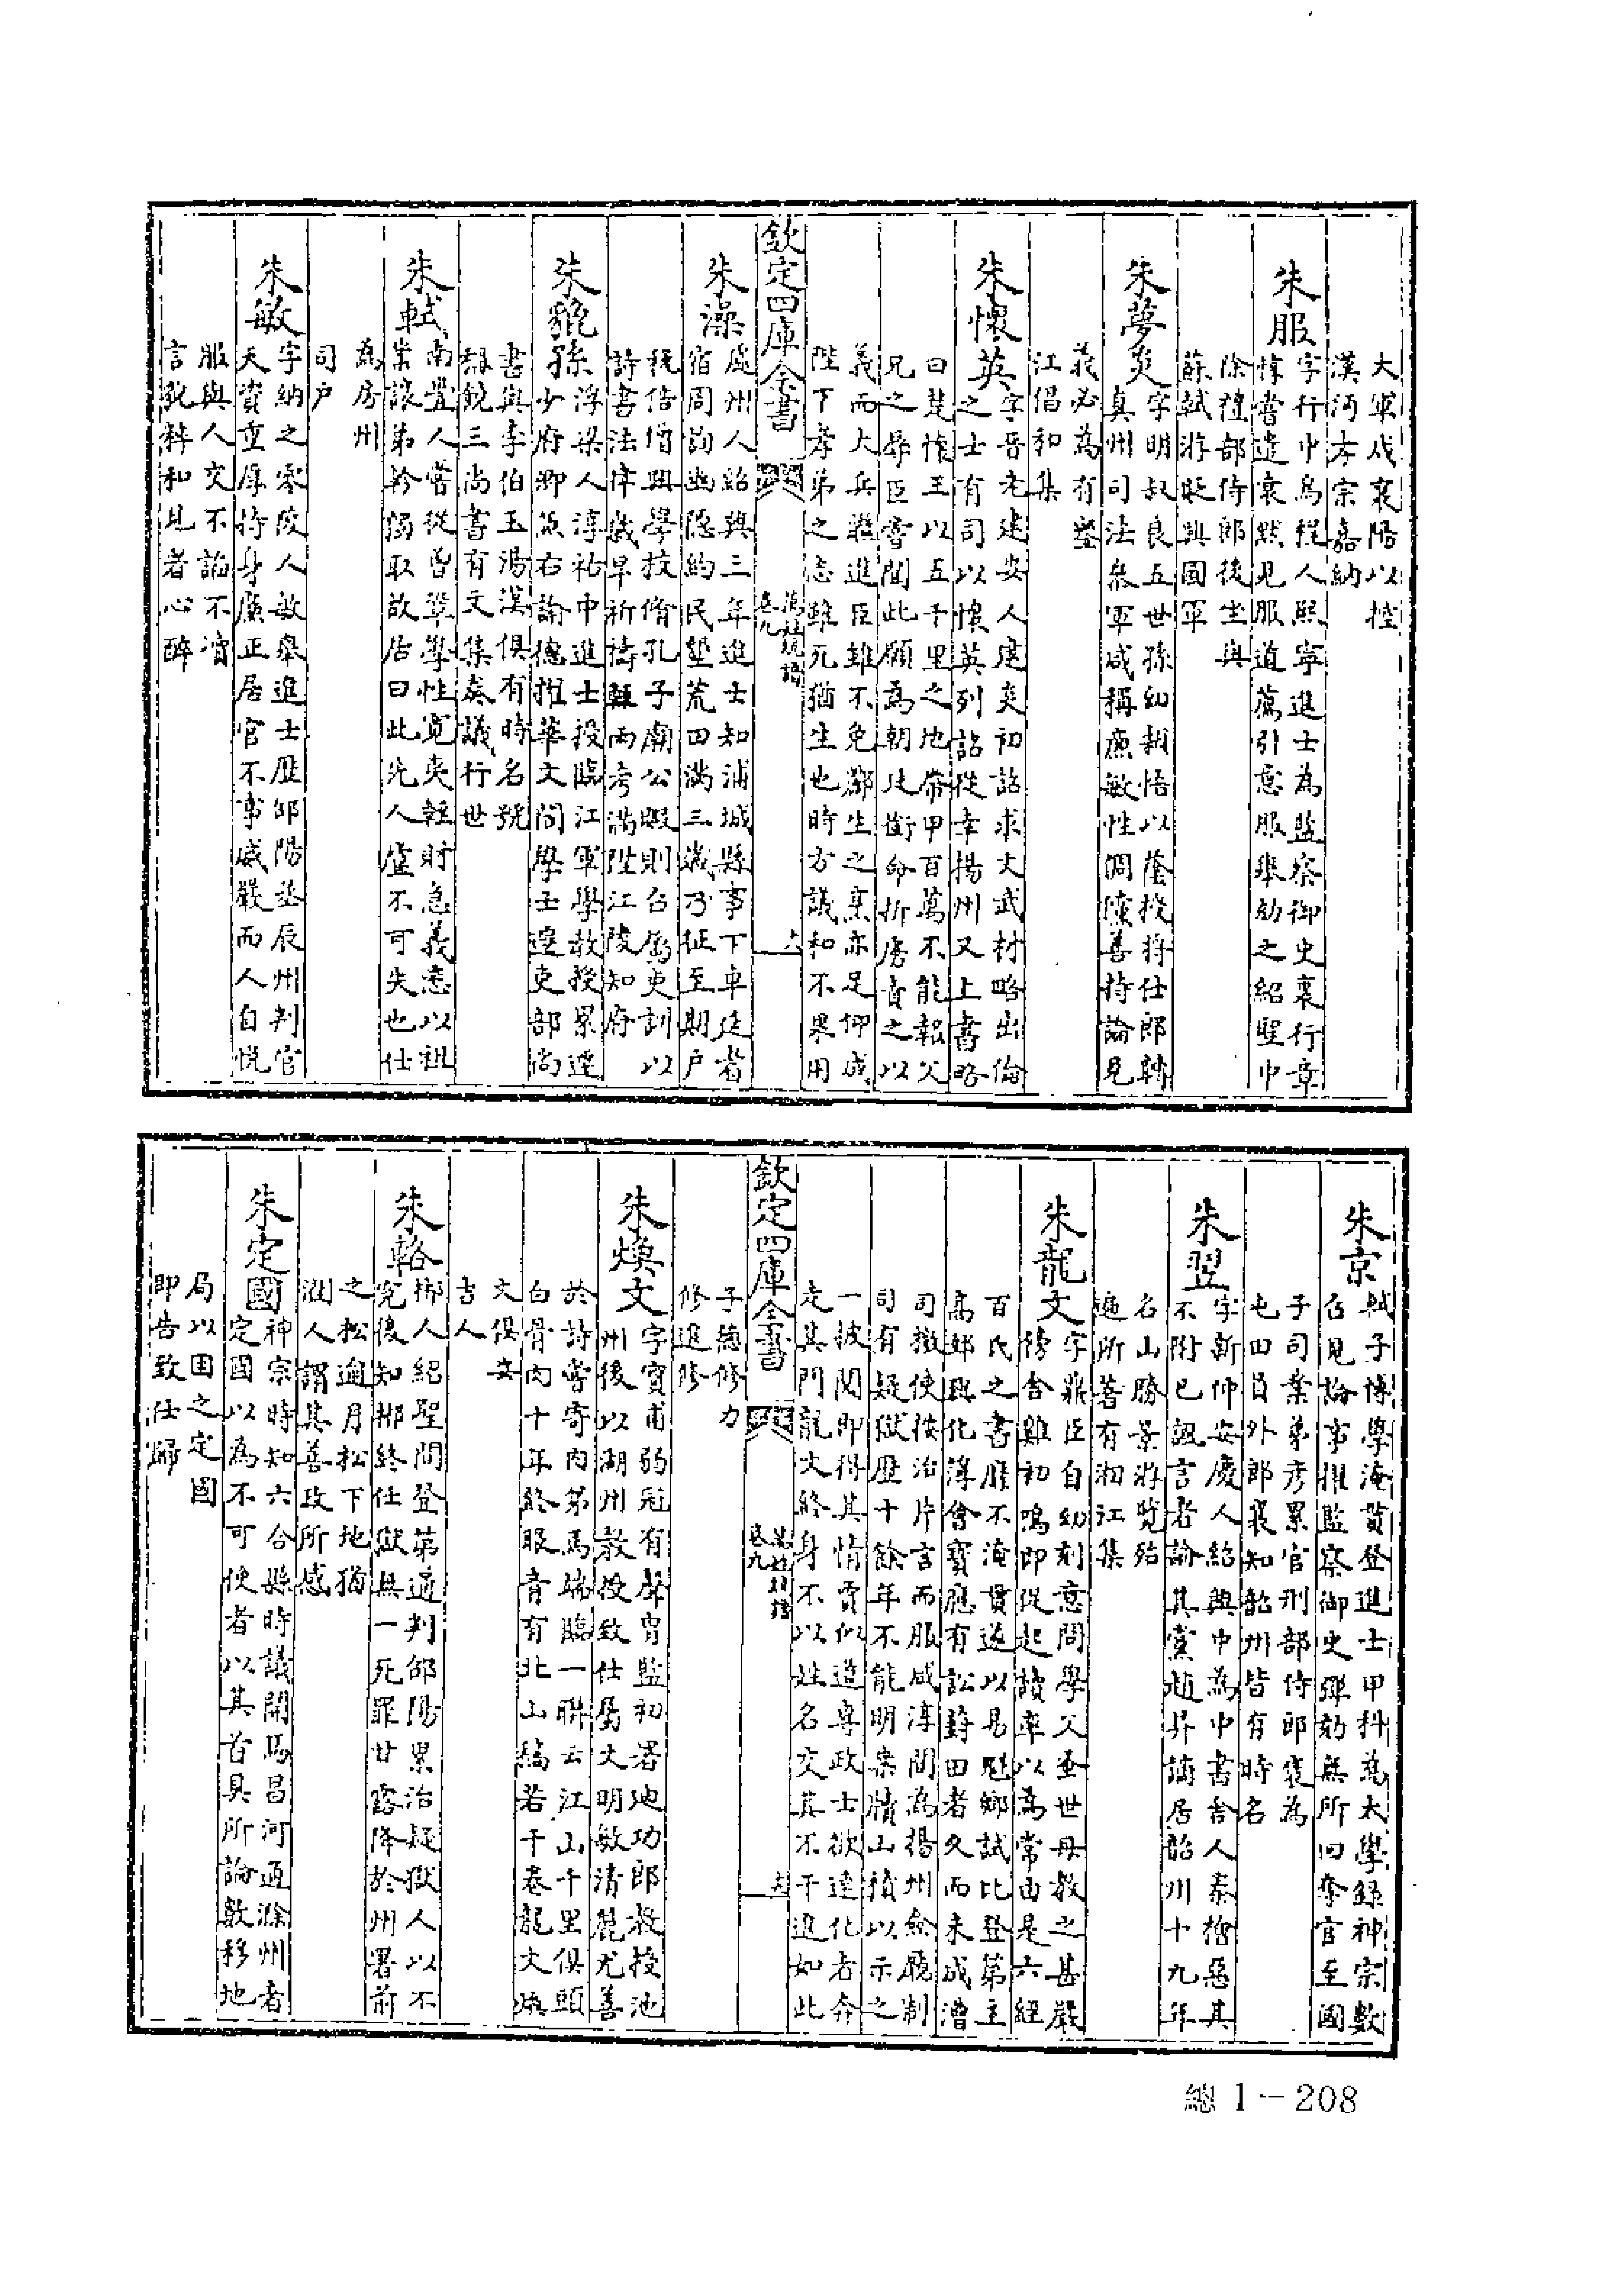 大軍戍襄陽以控
漢沔孝宗嘉納
朱服
字行中烏程人熙寧進士為監察御史裏行章
惇嘗遣袁默見服道薦引意服舉劾之紹聖中
除禮部侍郎後坐與
蘇軾游貶興國軍
朱夢炎
字明叔良五世孫幼穎悟以蔭授將仕郎轉
真州司法叅軍咸稱廉敏性倜儻善持論見
義必為有壑
江倡和集
朱懷英
字晋老建安人建炎初詔求文武材略出倫
之士有司以懷英列詔從幸揚州又上書略
曰楚懷王以五千里之地帶甲百萬不能報父
兄之辱臣嘗聞此願為朝廷銜命折虜責之以
義而大兵繼進臣雖不免酈生之烹亦足仰成
陛下孝弟之志雖死猶生也時方議和不果用
欽定四庫全書
萬姓統譜
卷九
十八
朱澡
處州人紹興三年進士知浦城縣事下車延耆
宿周詢幽隱約民墾荒田滿三歲乃征至期戶
稅倍增興學校脩孔子廟公暇則召屬吏訓以
詩書法律歲旱祈禱輒雨考滿陞江陵知府
朱貔孫
浮梁人淳祐中進士授臨江軍學教授累遷
少府卿兼右諭德擢華文閣學士遷吏部尚
書與李伯玉湯漢俱有時名號
稱饒三尚書有文集奏議行世
朱軾
南豐人嘗從曾鞏學性寬夷輕財急義悉以祖
業讓弟幹獨取故居曰此先人廬不可失也仕
為房州
司戶
朱敏
字納之零陵人敏舉進士歷邵陽丞辰州判官
天資重厚持身廉正居官不事威嚴而人自悅
服與人交不諂不瀆
言貌粹和見者心醉
朱京
軾子博學淹貫登進士甲科為太學錄神宗數
召見論事擢監察御史彈劾無所回奪官至國
子司業弟彥累官刑部侍郎袞為
屯田員外郎襄知韶州皆有時名
朱翌
字新仲安慶人紹興中為中書舍人秦檜惡其
不附已諷言者論其黨趙鼎謫居韶州十九年
名山勝景游覽殆
遍所著有湘江集
朱龍文
字鼎臣自幼刻意問學父蚤世母教之甚嚴
傍舍雞初鳴即促起讀率以為常由是六經
百氏之書靡不淹貫遂以易魁鄉試比登第主
高郵興化簿會寶應有訟葑田者久而未成漕
司檄使按治片言而服咸淳間為揚州僉廳制
司有疑獄歷十餘年不能明案牘山積以示之
一披閱即得其情賈似道專政士欲速化者奔
走其門龍文終身不以姓名交其不干進如此
欽定四庫全書
萬姓統譜
卷九
十九
子德修力
修進修
朱煥文
字寶甫弱冠有聲胄監初署廸功郎教授池
州後以湖州教授致仕居大明敏清麗尤善
於詩嘗寄內弟馬端臨一聯云江山千里俱頭
白骨肉十年終眼青有北山稿若干卷龍文煥
文俱安
吉人
朱輅
郴人紹聖間登第通判邵陽累治疑獄人以不
寃後知郴終仕獄無一死罪甘露降於州署前
之松逾月松下地猶
潤人謂其善政所感
朱定國
神宗時知六合縣時議開馬昌河通滁州者
定國以為不可使者以其首具所論數移地
局以困之定國
即告致仕歸
總1－208